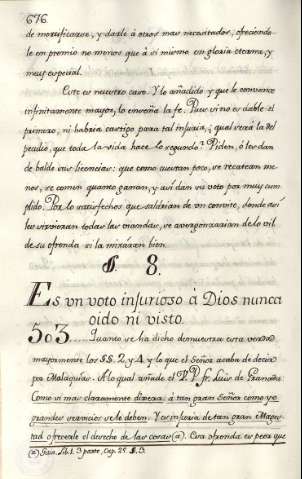 676.
de mortificarse, y darle à otros mas necesitados, ofreciendo-
le en premio no menos que à si mismo en gloria eterna, y
muy especial.
Este es nuestro caso. Y lo añadido y que le convence
infinitamente mayor, lo enseña la fe. Pues si no es doble el
primero, ni habria castigo para tal injuria; qual será la del
que toda la vida hace lo segundo? Piden, ò les dan
de balde sus licencias: que como cuestan poco, se recatean me-
nos, se comen quanto ganan, y asi dan su voto por muy cum-
plido. Por lo satisfechos que saldrian de un convite, donde asi
les sirvieran todas las viandas, se avergonzarian de lo vil
de su ofrenda si la miràran bien.
§. 8.
Es vn voto injurioso à Dios nunca
oido ni visto.
503..... Quanto se ha dicho demuestra esta verdad
mayormente los §§. 2, y 4, y lo que el Señor acaba de decir
por Malaquias. A lo qual añade el V. P. Fr. Luis de Granada:
Como si mas claramente dixera: à tan gran Señor como yo
grandes servicios se le deben. Y es injuria de tan gran Mages-
tad ofrecerle el desecho de las cosas (a). Esta ofrenda es peor que
(a) Lib. 1. 3 parte, Cap. 25. §. 3.